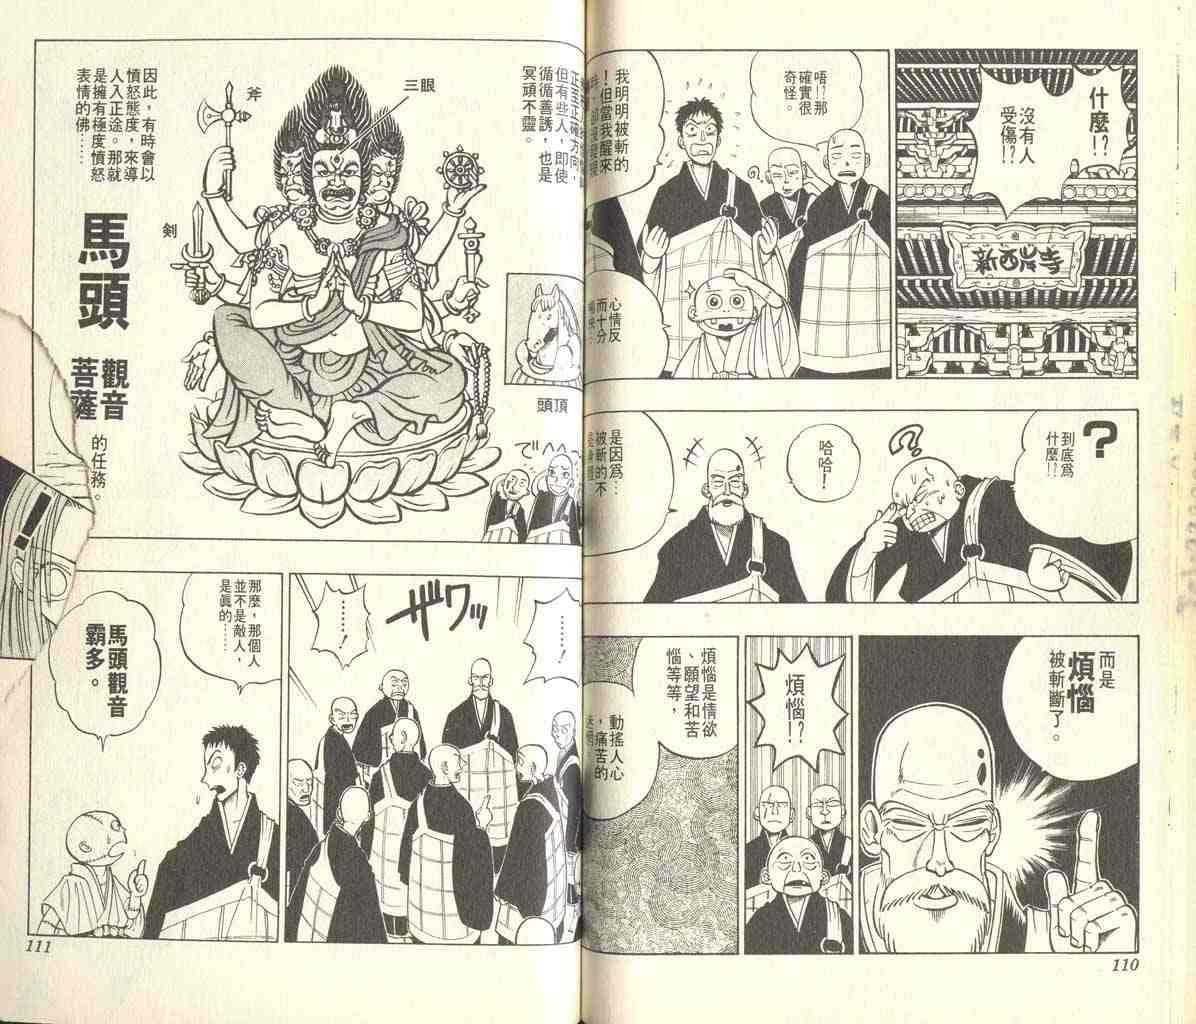 什麼!?
沒有人
受傷!?
新西岸寺
唔!?那
確實很
奇怪。
我明明被斬的
!但當我醒來
心情反
而十分
?
到底為
什麼!?
?
哈哈!
是因為…
被斬的不
而是
煩惱
被斬斷了。
煩惱!?
煩惱是情欲
、願望和苦
惱等等,
動搖人心
,痛苦的
110
正至正確方向,
但有些人,即使
循循善誘,也是
冥頑不靈。
三眼
斧
剣
頭頂
因此,有時會以
憤怒態度,來導
人入正途。那就
是擁有極度憤怒
表情的佛……
馬頭
觀音
菩薩
的任務。
で
……!
ザワッ
……!
那麼,那個人
並不是敵人,
是眞的……
馬頭觀音
霸多。
111